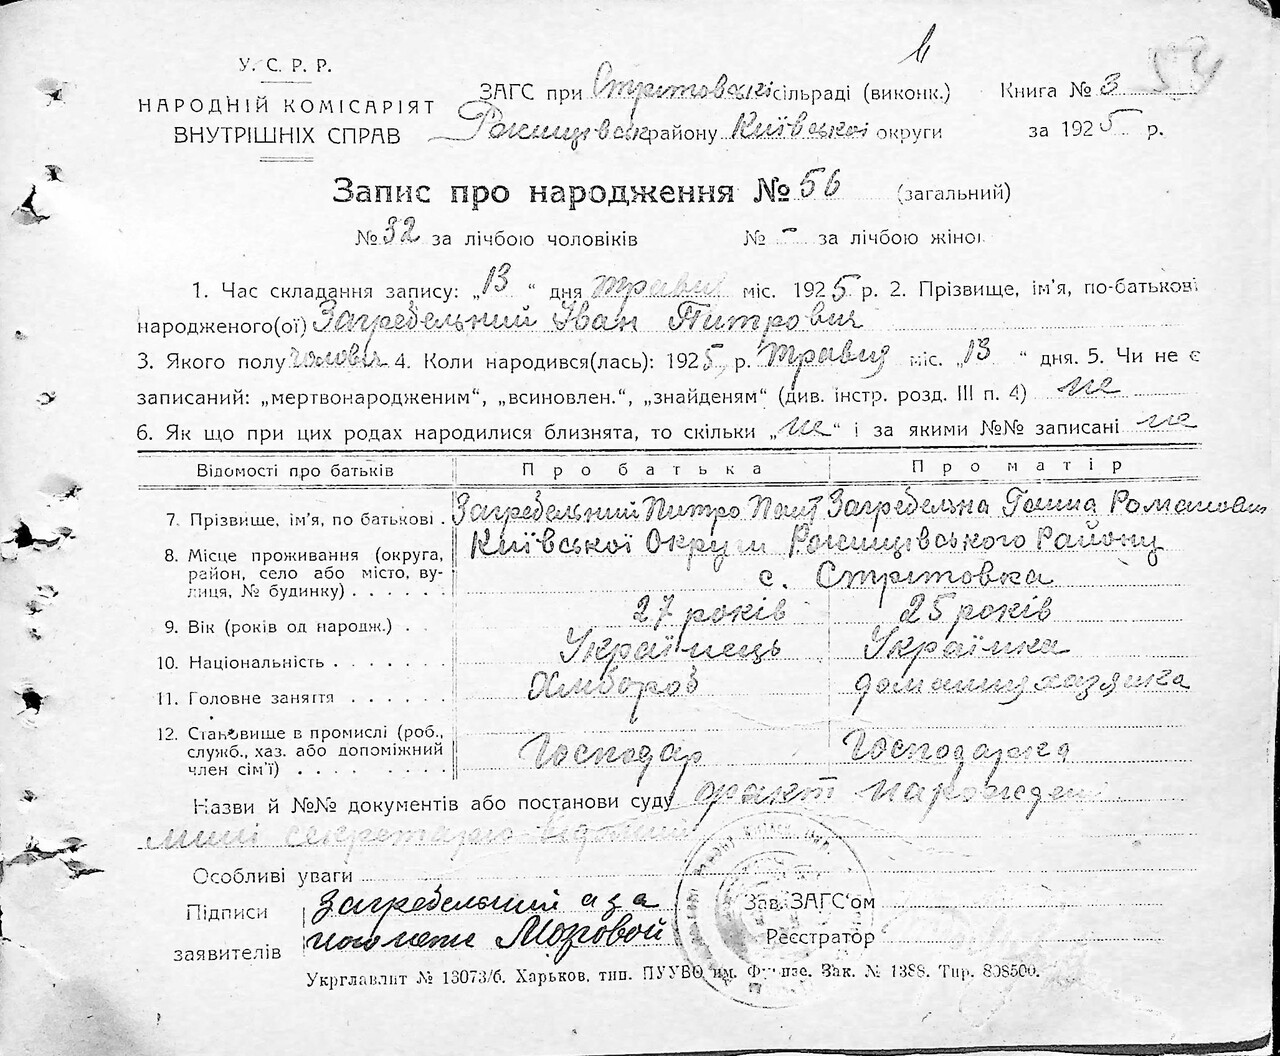 У. С. Р. Р.
НАРОДНІЙ КОМІСАРІЯТ
ВНУТРІШНІХ СПРАВ
ЗАГС при Стрітовській сільраді (виконк.)
району Київської округи
Книга № 3
за 1925 р.
Запис про народження № 56 (загальний)
№ 32 за лічбою чоловіків № - за лічбою жінок
1. Час складання запису: „13“ дня травня міс. 1925 р. 2. Прізвище, ім'я, по-батькові
народженого(ої) Загребельний Іван Питрович
3. Якого полу чоловіч 4. Коли народився(лась): 1925 р. травня міс. „13“ дня. 5. Чи не є
записаний: „мертвонародженим“, „всиновлен.“, „знайденям“ (див. інстр. розд. III п. 4) не
6. Як що при цих родах народилися близнята, то скільки „не“ і за якими №№ записані не
Відомості про батьків Про батька Про матір
7. Прізвище, ім'я, по батькові . Загребельний Питро Загребельна Ганна Романовна
8. Місце проживання (округа, район, село або місто, вулиця, № будинку) . . . . . Київської Округи Району
с. Стрітовка
9. Вік (років од народж.) . . 27 років 25 років
10. Національність . . . . . . . Українець Українка
11. Головне заняття . . . . . . Хлібороб домашня хазяйка
12. Становище в промислі (роб., служб., хаз. або допоміжний член сім'ї) . . . . . . . . Господар Господарка
Назви й №№ документів або постанови суду факт народжен
секретарю
Особливі уваги
Підписи заявителів
Загребельний а за
Мозговой
Зав. ЗАГС'ом
Реєстратор
Укрглавлит № 13073/б. Харьков, тип. ПУУВО им. Фрунзе. Зак. № 1388. Тир. 808500.